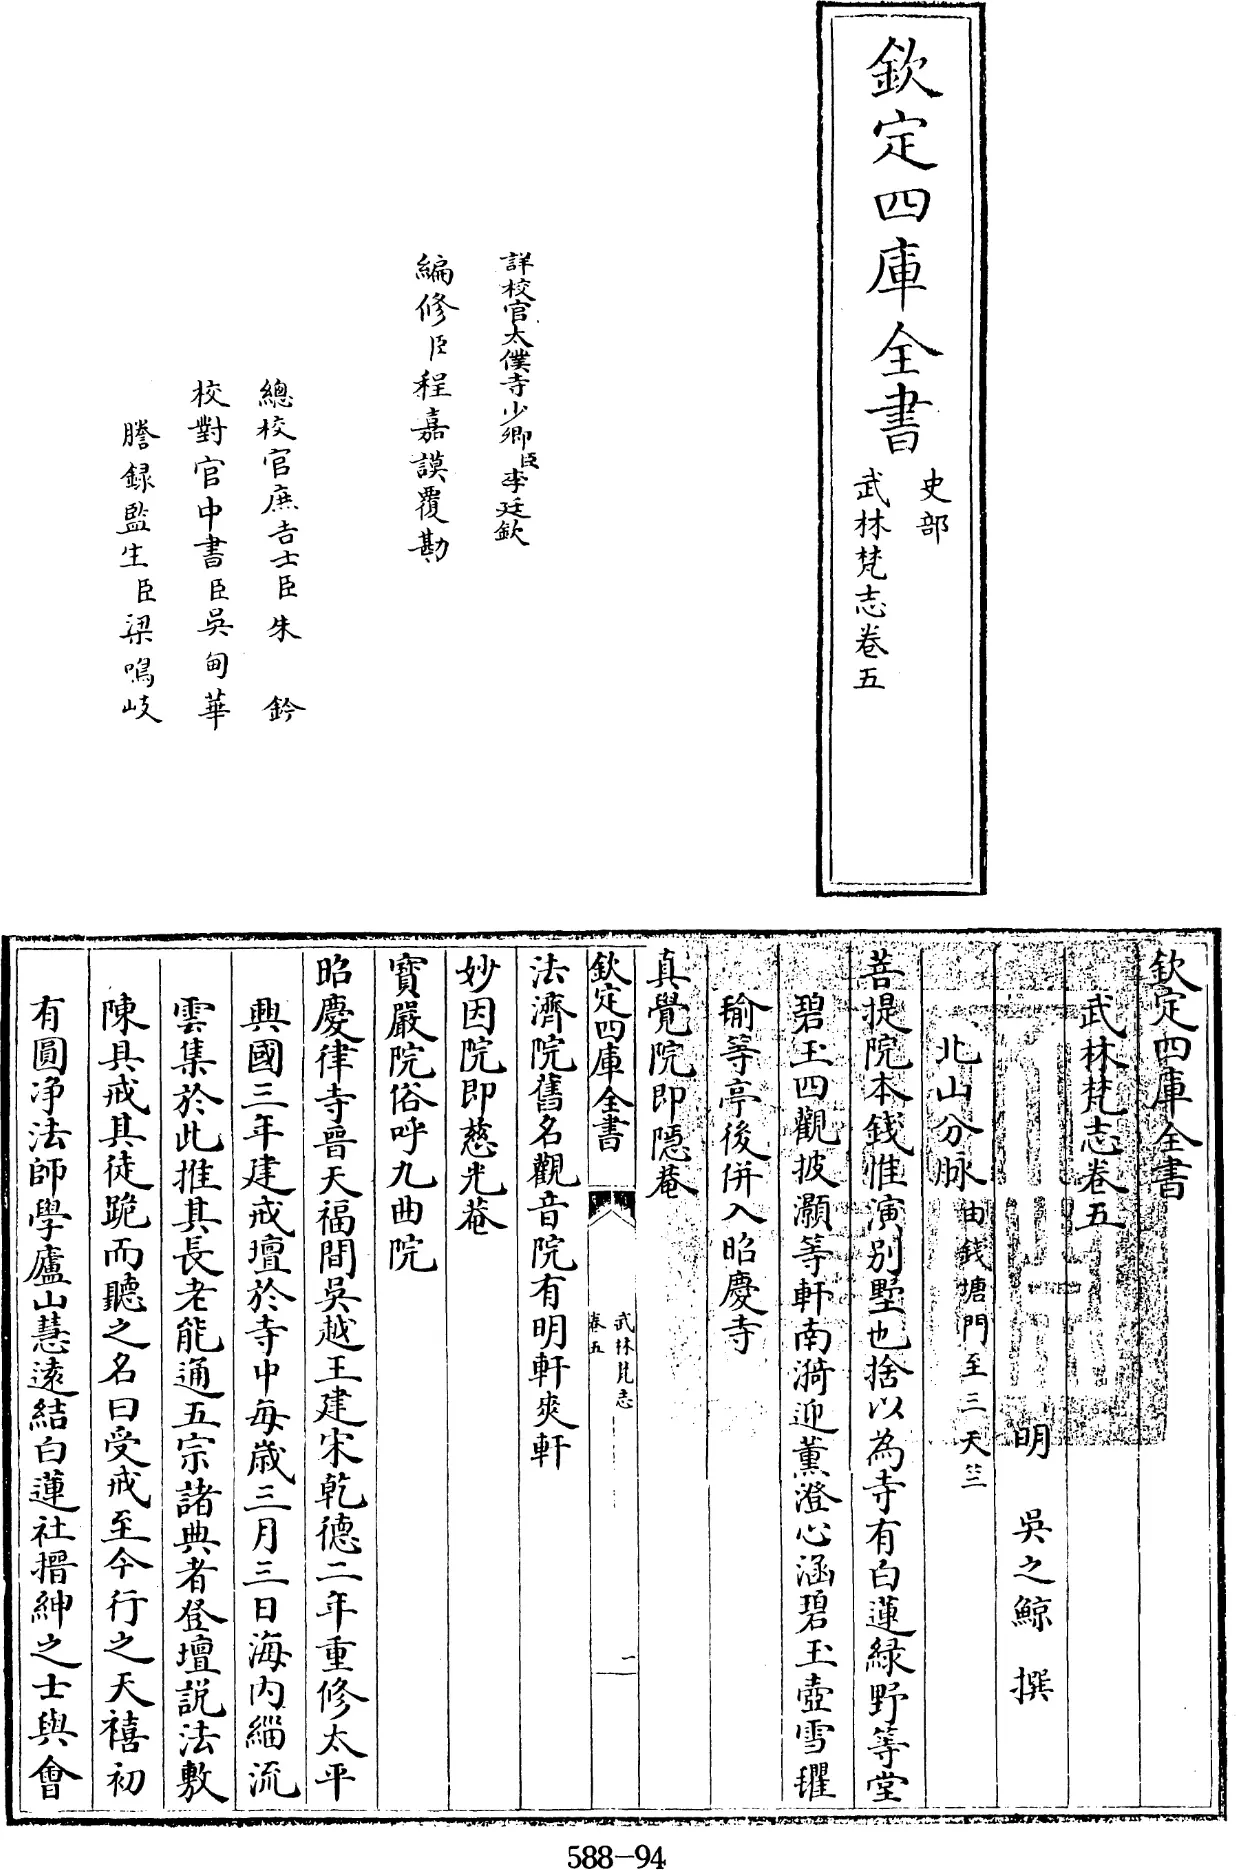 欽定四庫全書
史部
武林梵志卷五
詳校官太僕寺少卿臣李廷欽
編修臣程嘉謨覆勘
總校官庶吉士臣朱鈐
校對官中書臣吳甸華
謄録監生臣梁鳴岐
欽定四庫全書
武林梵志卷五
明 吳之鯨 撰
北山分脉由錢塘門至三天竺
菩提院本錢惟演別墅也捨以為寺有白蓮緑野等堂
碧玉四觀披灝等軒南漪迎薰澄心涵碧玉壺雪瓘
瑜等亭後併入昭慶寺
真覺院即隱菴
欽定四庫全書
武林梵志
卷五
二
法濟院舊名觀音院有明軒爽軒
妙因院即慈光菴
寳嚴院俗呼九曲院
昭慶律寺晉天福間吳越王建宋乾德二年重修太平
興國三年建戒壇於寺中每歲三月三日海内緇流
雲集於此推其長老能通五宗諸典者登壇説法敷
陳具戒其徒跪而聽之名曰受戒至今行之天禧初
有圓净法師學廬山慧遠結白蓮社搢紳之士與會
588-94